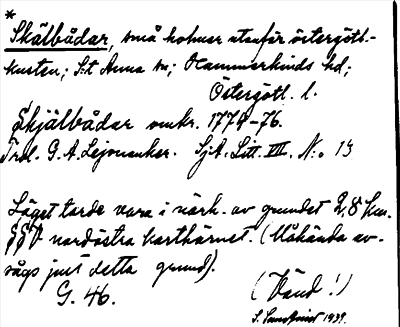 *
Skälbådar, små holmar utanför östergötl.-
kusten; S:t Anna sn; Hammarkinds hd;
Östergötl. l.
Skjälbådar omkr. 1774-76.
Trol. G. A. Lejonanker. SjA. Litt. VII. No 13
Läget torde vara i närh. av grundet 2,8 km.
SSV nordöstra karthörnet. (Måhända av-
sågs just detta grund).
G. 46.
(Vänd!)
S. 1939.